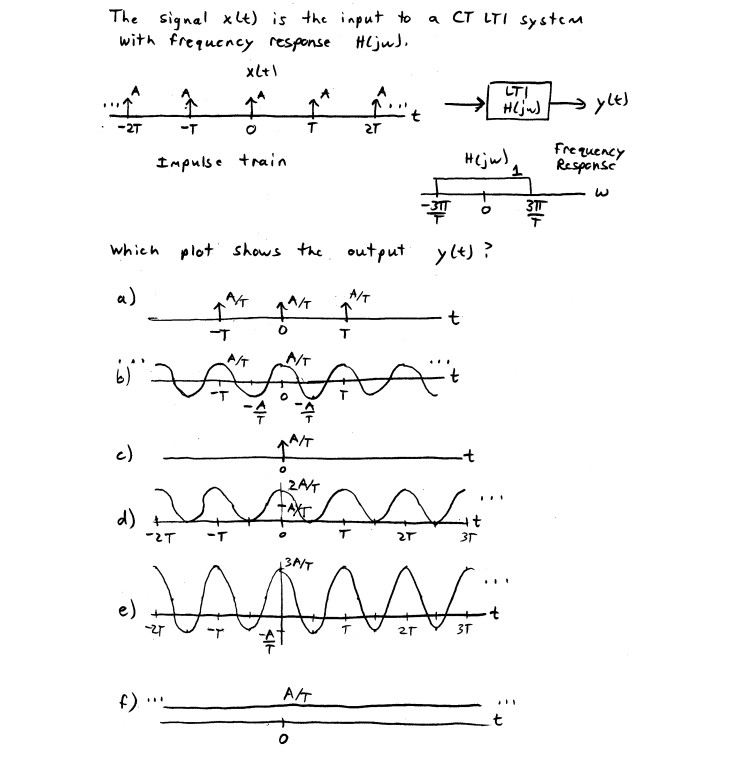 The signal x(t) is the input to a CT LTI system
with frequency response H(jω).
x(t)
A A A A A
... ... t
-2T -T 0 T 2T
Impulse train
LTI
H(jω)
y(t)
H(jω) 1
Frequency
Response
ω
-3π/T 0 3π/T
Which plot shows the output y(t)?
a) A/T A/T A/T
t
-T 0 T
.... A/T A/T ...
b) t
-T 0 T
-A/T -A/T
c) A/T
t
0
2A/T ...
d) -A/T t
-2T -T 0 T 2T 3T
3A/T ...
e) t
-2T -T -A/T T 2T 3T
f) ... A/T ...
t
0